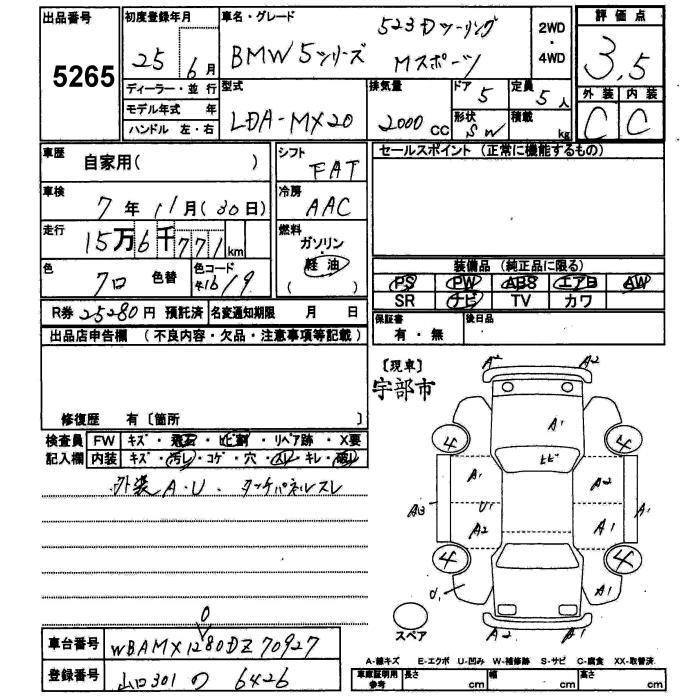 出品番号 5265
初度登録年月 25 6月
車名・グレード BMW 5シリーズ 523Dツーリング Mスポーツ
2WD・4WD
評価点 3.5
外装 C 内装 C
ディーラー・並行
モデル年式 年
ハンドル 左・右
型式 LDA-MX20
排気量 2000cc
ドア 5
形状 SW
定員 5人
積載 kg
車歴 自家用( )
シフト FAT
セールスポイント (正常に機能するもの)
車検 7年11月(30日)
冷房 AAC
走行 15万6千771km
燃料 ガソリン・軽油 ( )
色 クロ 色替
色コード 416/9
装備品 (純正品に限る)
PS PW ABS エアB AW
SR ナビ TV カワ
R券 25280円 預託済 名変通知期限 月 日
保証書 有・無 後日品
出品店申告欄 (不良内容・欠品・注意事項等記載)
修復歴 有〔箇所 〕
〔現車〕
宇部市
検査員記入欄
FW キズ・飛石・ヒビ割・リペア跡・X要
内装 キズ・汚レ・コゲ・穴・スレ・キレ・破レ
外装A.U. タッチパネルスレ
A2 A2
A1
4 4
ヒビ
A1 A2
A3 U1 A1
A2 A1
4 4
U1 A1
A2 A2
スペア
0
車台番号 WBAMX1280DZ70927
登録番号 山口301 の 6426
A-線キズ E-エクボ U-凹み W-補修跡 S-サビ C-腐食 XX-取替済
車庫証明用参考 長さ cm 幅 cm 高さ cm